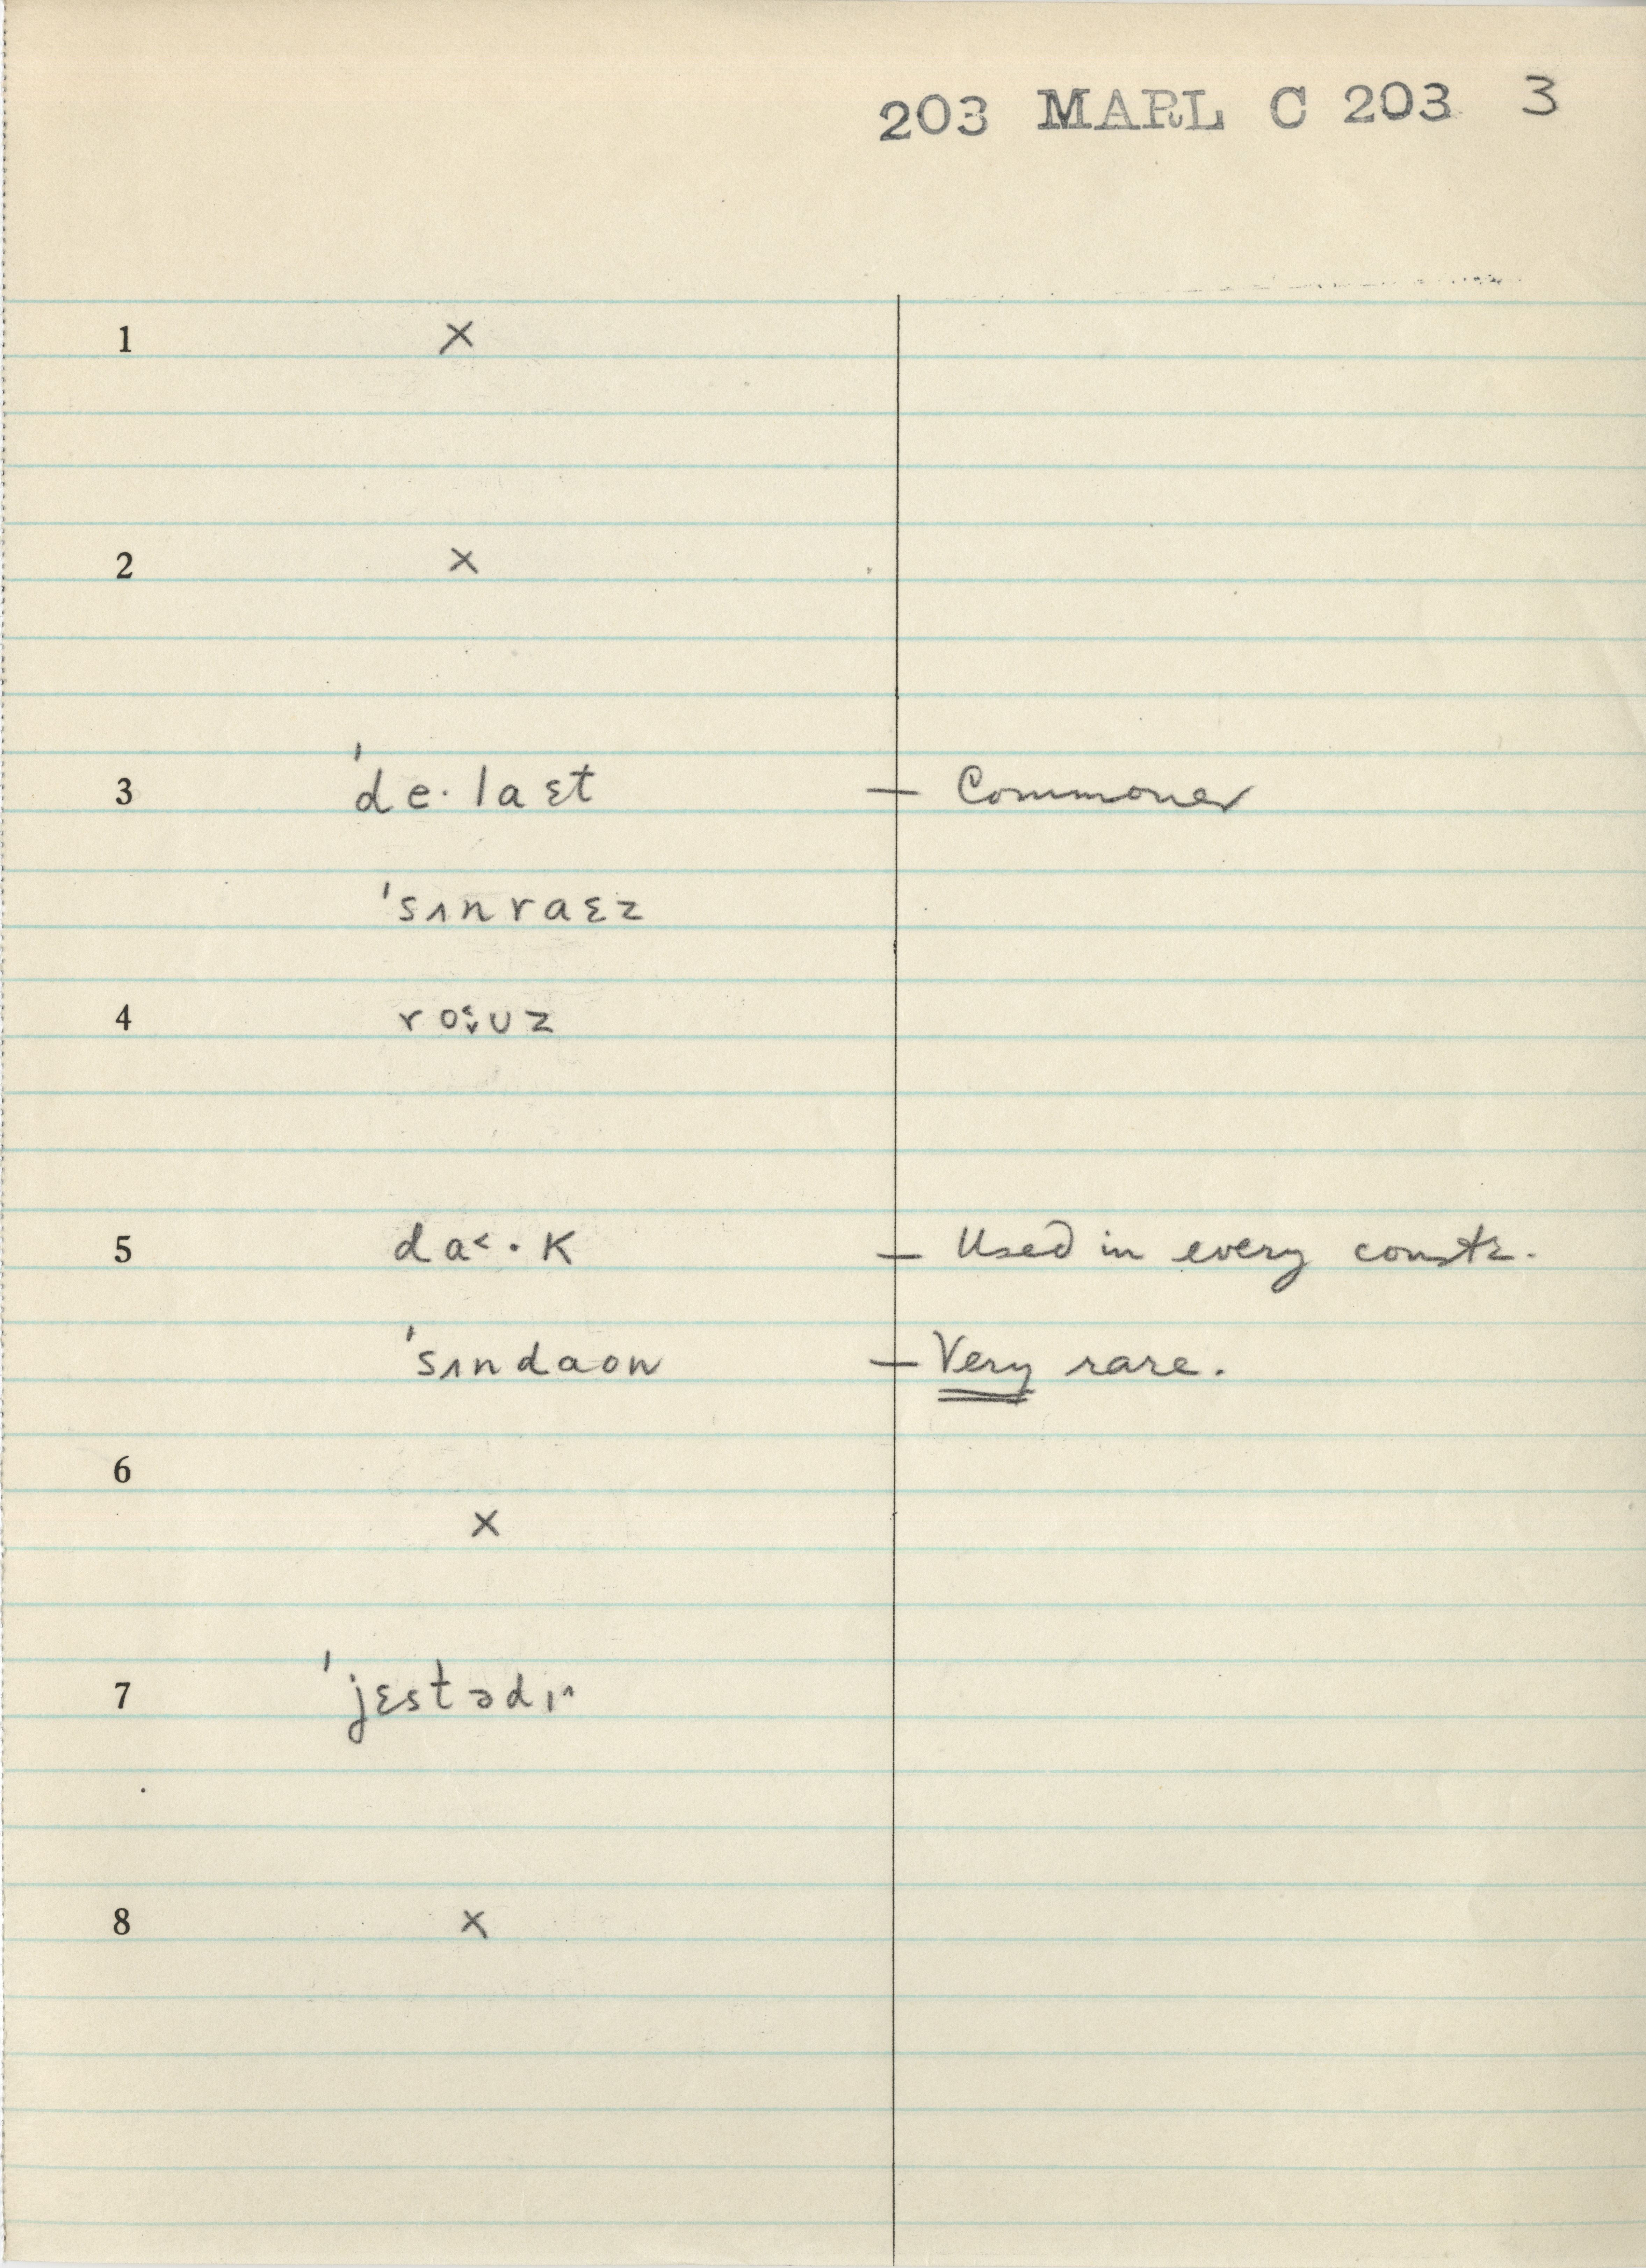 203 MARL C 203 3
1 ×
2 ×
3 ˈde·laɛt — Commoner
ˈsʌnraɛz
4 roʊz
5 da˂·k — Used in every constr.
ˈsʌndaon — Very rare.
6
×
7 ˈjɛstədɪ^
8 ×